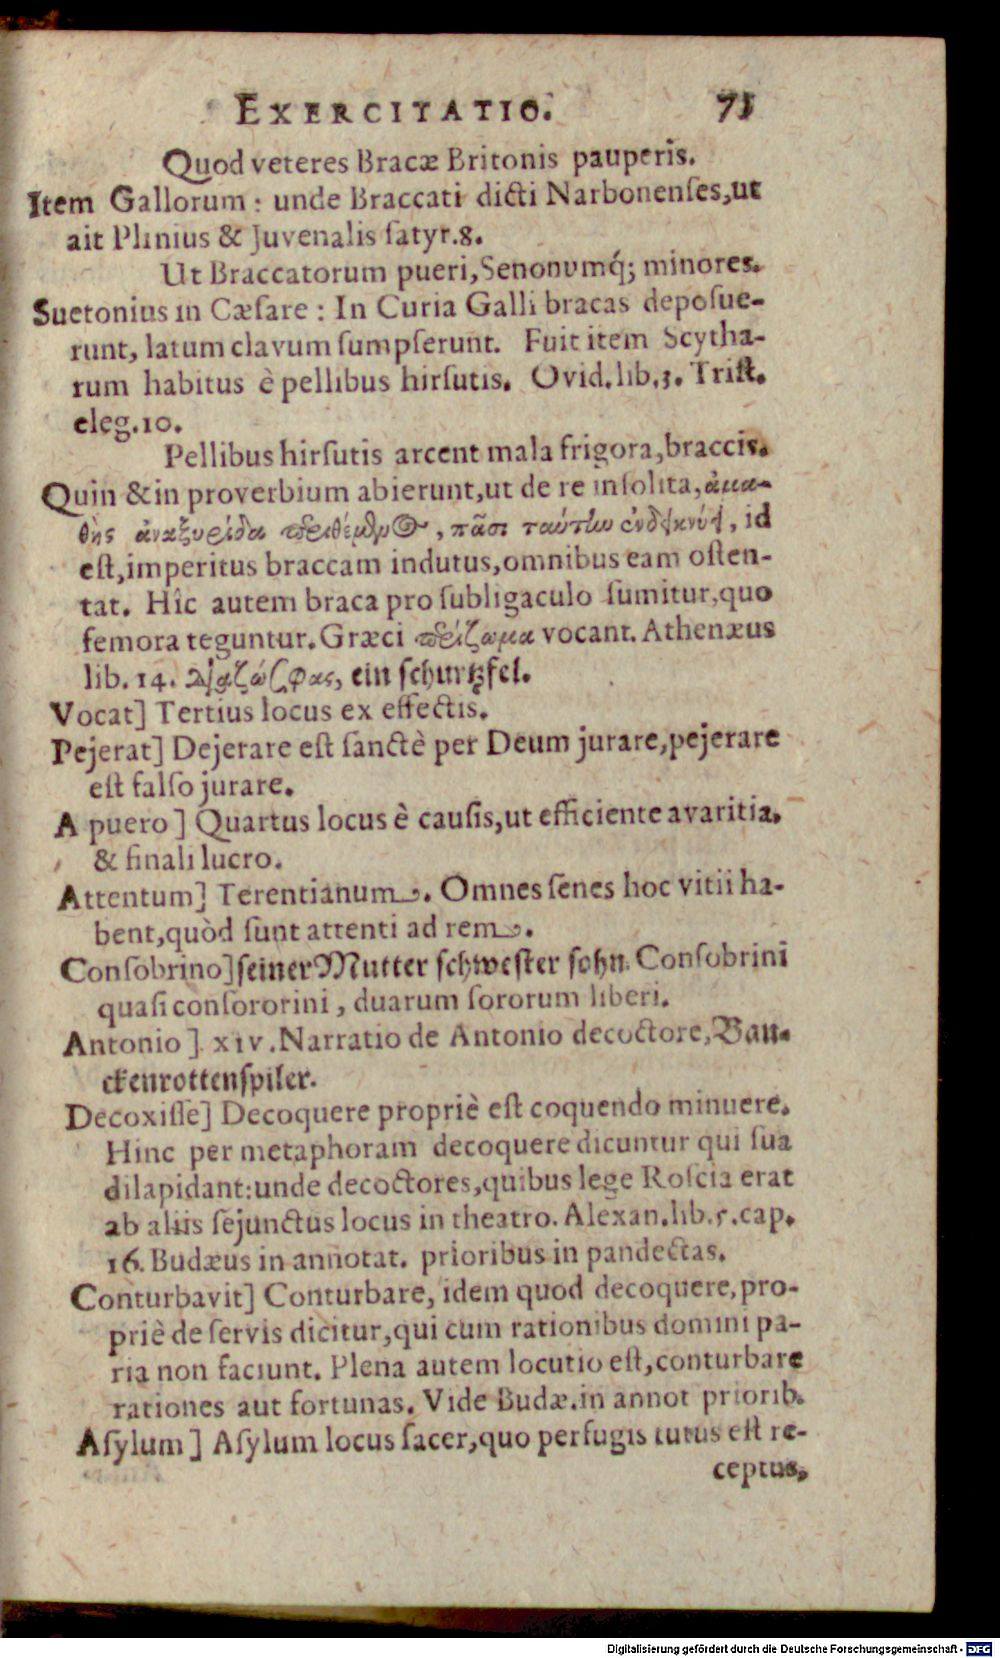 EXERCITATIO. 71
Quod veteres Bracæ Britonis pauperis.
Item Gallorum : unde Braccati dicti Narbonenſes,ut
ait Plinius & Juvenalis ſatyr.8.
Ut Braccatorum pueri,Senonumq́; minores.
Suetonius in Cæſare : In Curia Galli bracas depoſue-
runt, latum clavum ſumpſerunt. Fuit item Scytha-
rum habitus è pellibus hirſutis. Ovid.lib.3. Triſt.
eleg.10.
Pellibus hirſutis arcent mala frigora,braccis.
Quin & in proverbium abierunt,ut de re inſolita, ἀμα-
θὴς ἀναξυρίδα περιθέμενος, πᾶσι ταύτην ἐνδείκνυται, id
eſt,imperitus braccam indutus,omnibus eam oſten-
tat. Hîc autem braca pro ſubligaculo ſumitur,quo
femora teguntur. Græci περίζωμα vocant. Athenæus
lib. 14. ein ſchurtzfel.
Vocat] Tertius locus ex effectis.
Pejerat] Dejerare eſt ſanctè per Deum jurare,pejerare
eſt falſo jurare.
A puero ] Quartus locus è cauſis,ut efficiente avaritia.
& finali lucro.
Attentum] Terentianum. Omnes ſenes hoc vitii ha-
bent,quòd ſunt attenti ad rem.
Conſobrino] ſeiner Mutter ſchweſter ſohn. Conſobrini
quaſi conſororini , duarum ſororum liberi.
Antonio ] XIV. Narratio de Antonio decoctore, Ban-
ckenrottenſpiler.
Decoxiſſe] Decoquere propriè eſt coquendo minuere.
Hinc per metaphoram decoquere dicuntur qui ſua
dilapidant:unde decoctores,quibus lege Roſcia erat
ab aliis ſejunctus locus in theatro. Alexan.lib.5.cap.
16. Budæus in annotat. prioribus in pandectas.
Conturbavit] Conturbare, idem quod decoquere,pro-
priè de ſervis dicitur,qui cum rationibus domini pa-
ria non faciunt. Plena autem locutio eſt,conturbare
rationes aut fortunas. Vide Budæ.in annot priorib.
Aſylum ] Aſylum locus ſacer,quo perfugis tutus eſt re-
ceptus.
Digitalisierung gefördert durch die Deutsche Forschungsgemeinschaft - DFG